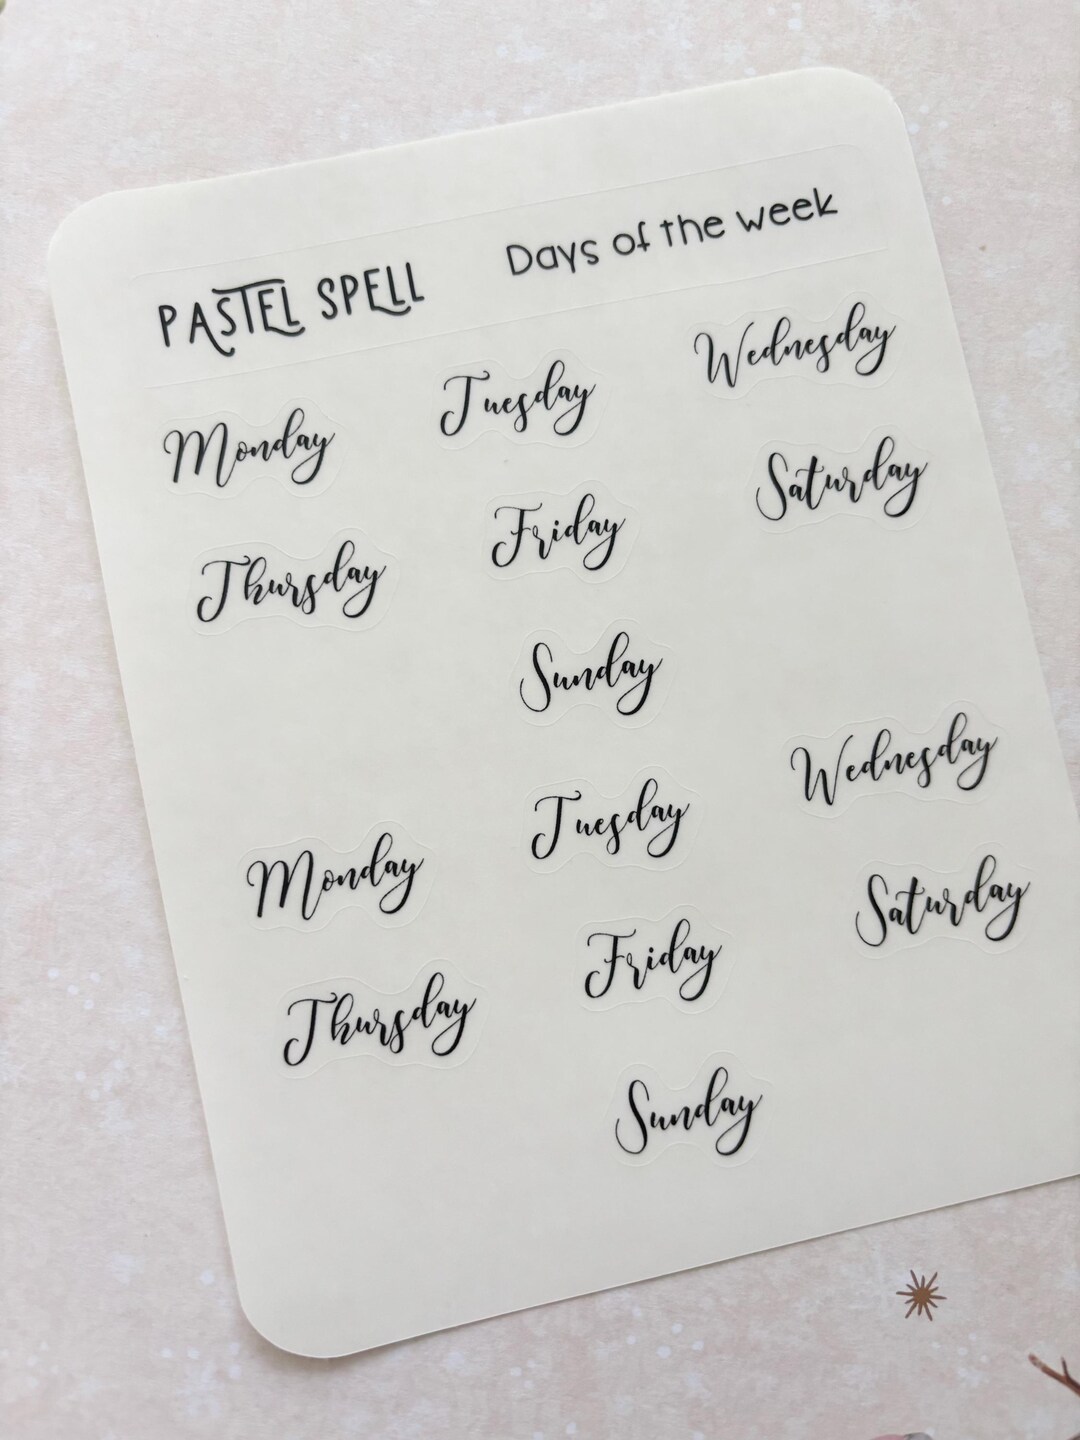 PASTEL SPELL Days of the week
Monday Tuesday Wednesday
Thursday Friday Saturday
Sunday
Monday Tuesday Wednesday
Thursday Friday Saturday
Sunday